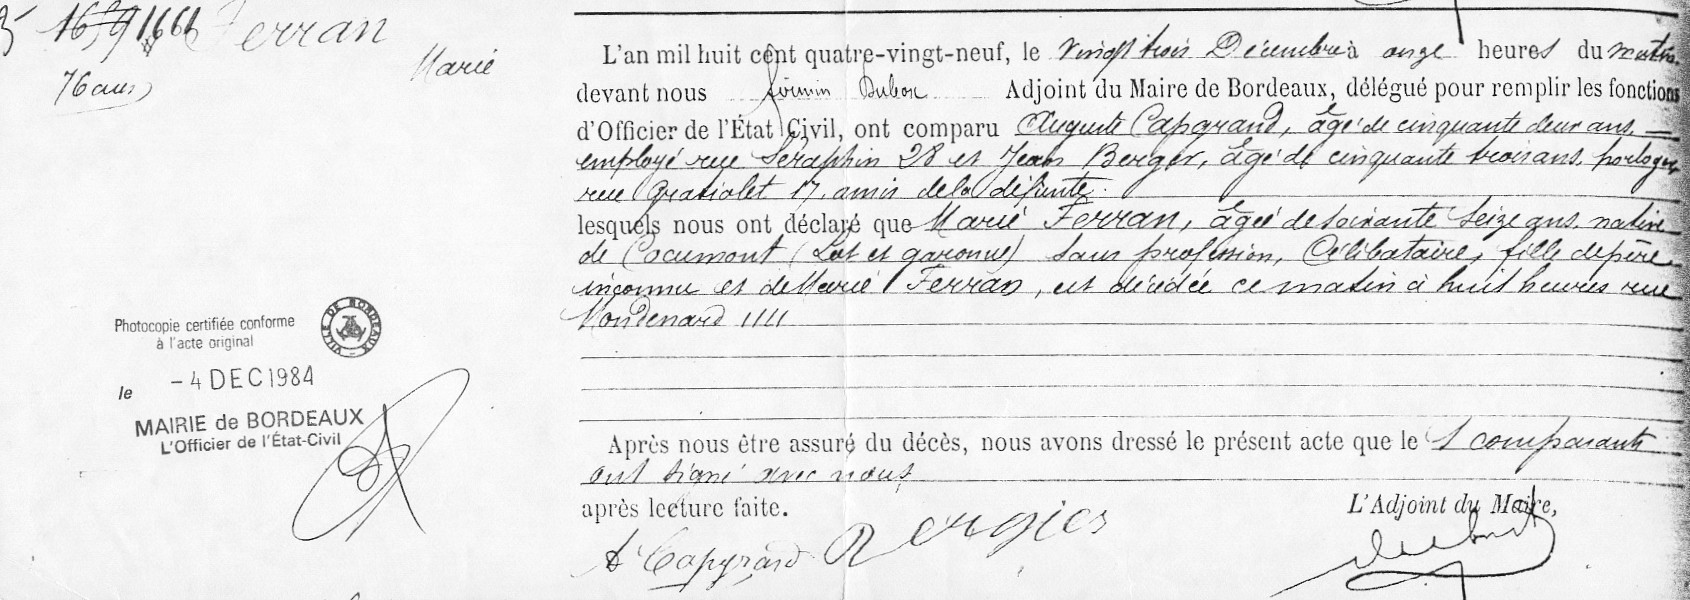 1659 1661 Ferran
Marie
76 ans
L'an mil huit cent quatre-vingt-neuf, le vingt trois Décembre à onze heures du matin
devant nous Firmin Dubosc Adjoint du Maire de Bordeaux, délégué pour remplir les fonctions
d'Officier de l'État Civil, ont comparu Auguste Capgrand, âgé de cinquante deux ans
employé rue Séraphin 28 et Jean Berger, âgé de cinquante trois ans, horloger
rue Gratiolet 17, amis de la défunte.
lesquels nous ont déclaré que Marie Ferran, âgée de soixante seize ans, native
de Cocumont (Lot et garonne) sans profession, Célibataire, fille de père
inconnu et de Marie Ferran, est décédée ce matin à huit heures rue
Mondenard
Photocopie certifiée conforme
à l'acte original
VILLE DE BORDEAUX
le - 4 DEC 1984
MAIRIE de BORDEAUX
L'Officier de l'État-Civil
Après nous être assuré du décès, nous avons dressé le présent acte que les comparants
ont signé avec nous,
après lecture faite.
L'Adjoint du Maire,
A Capgrand